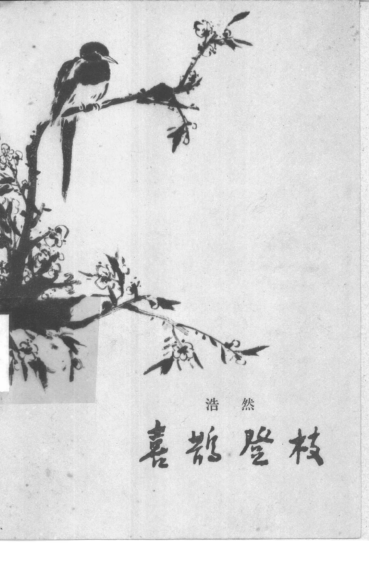 浩然
喜鹊登枝